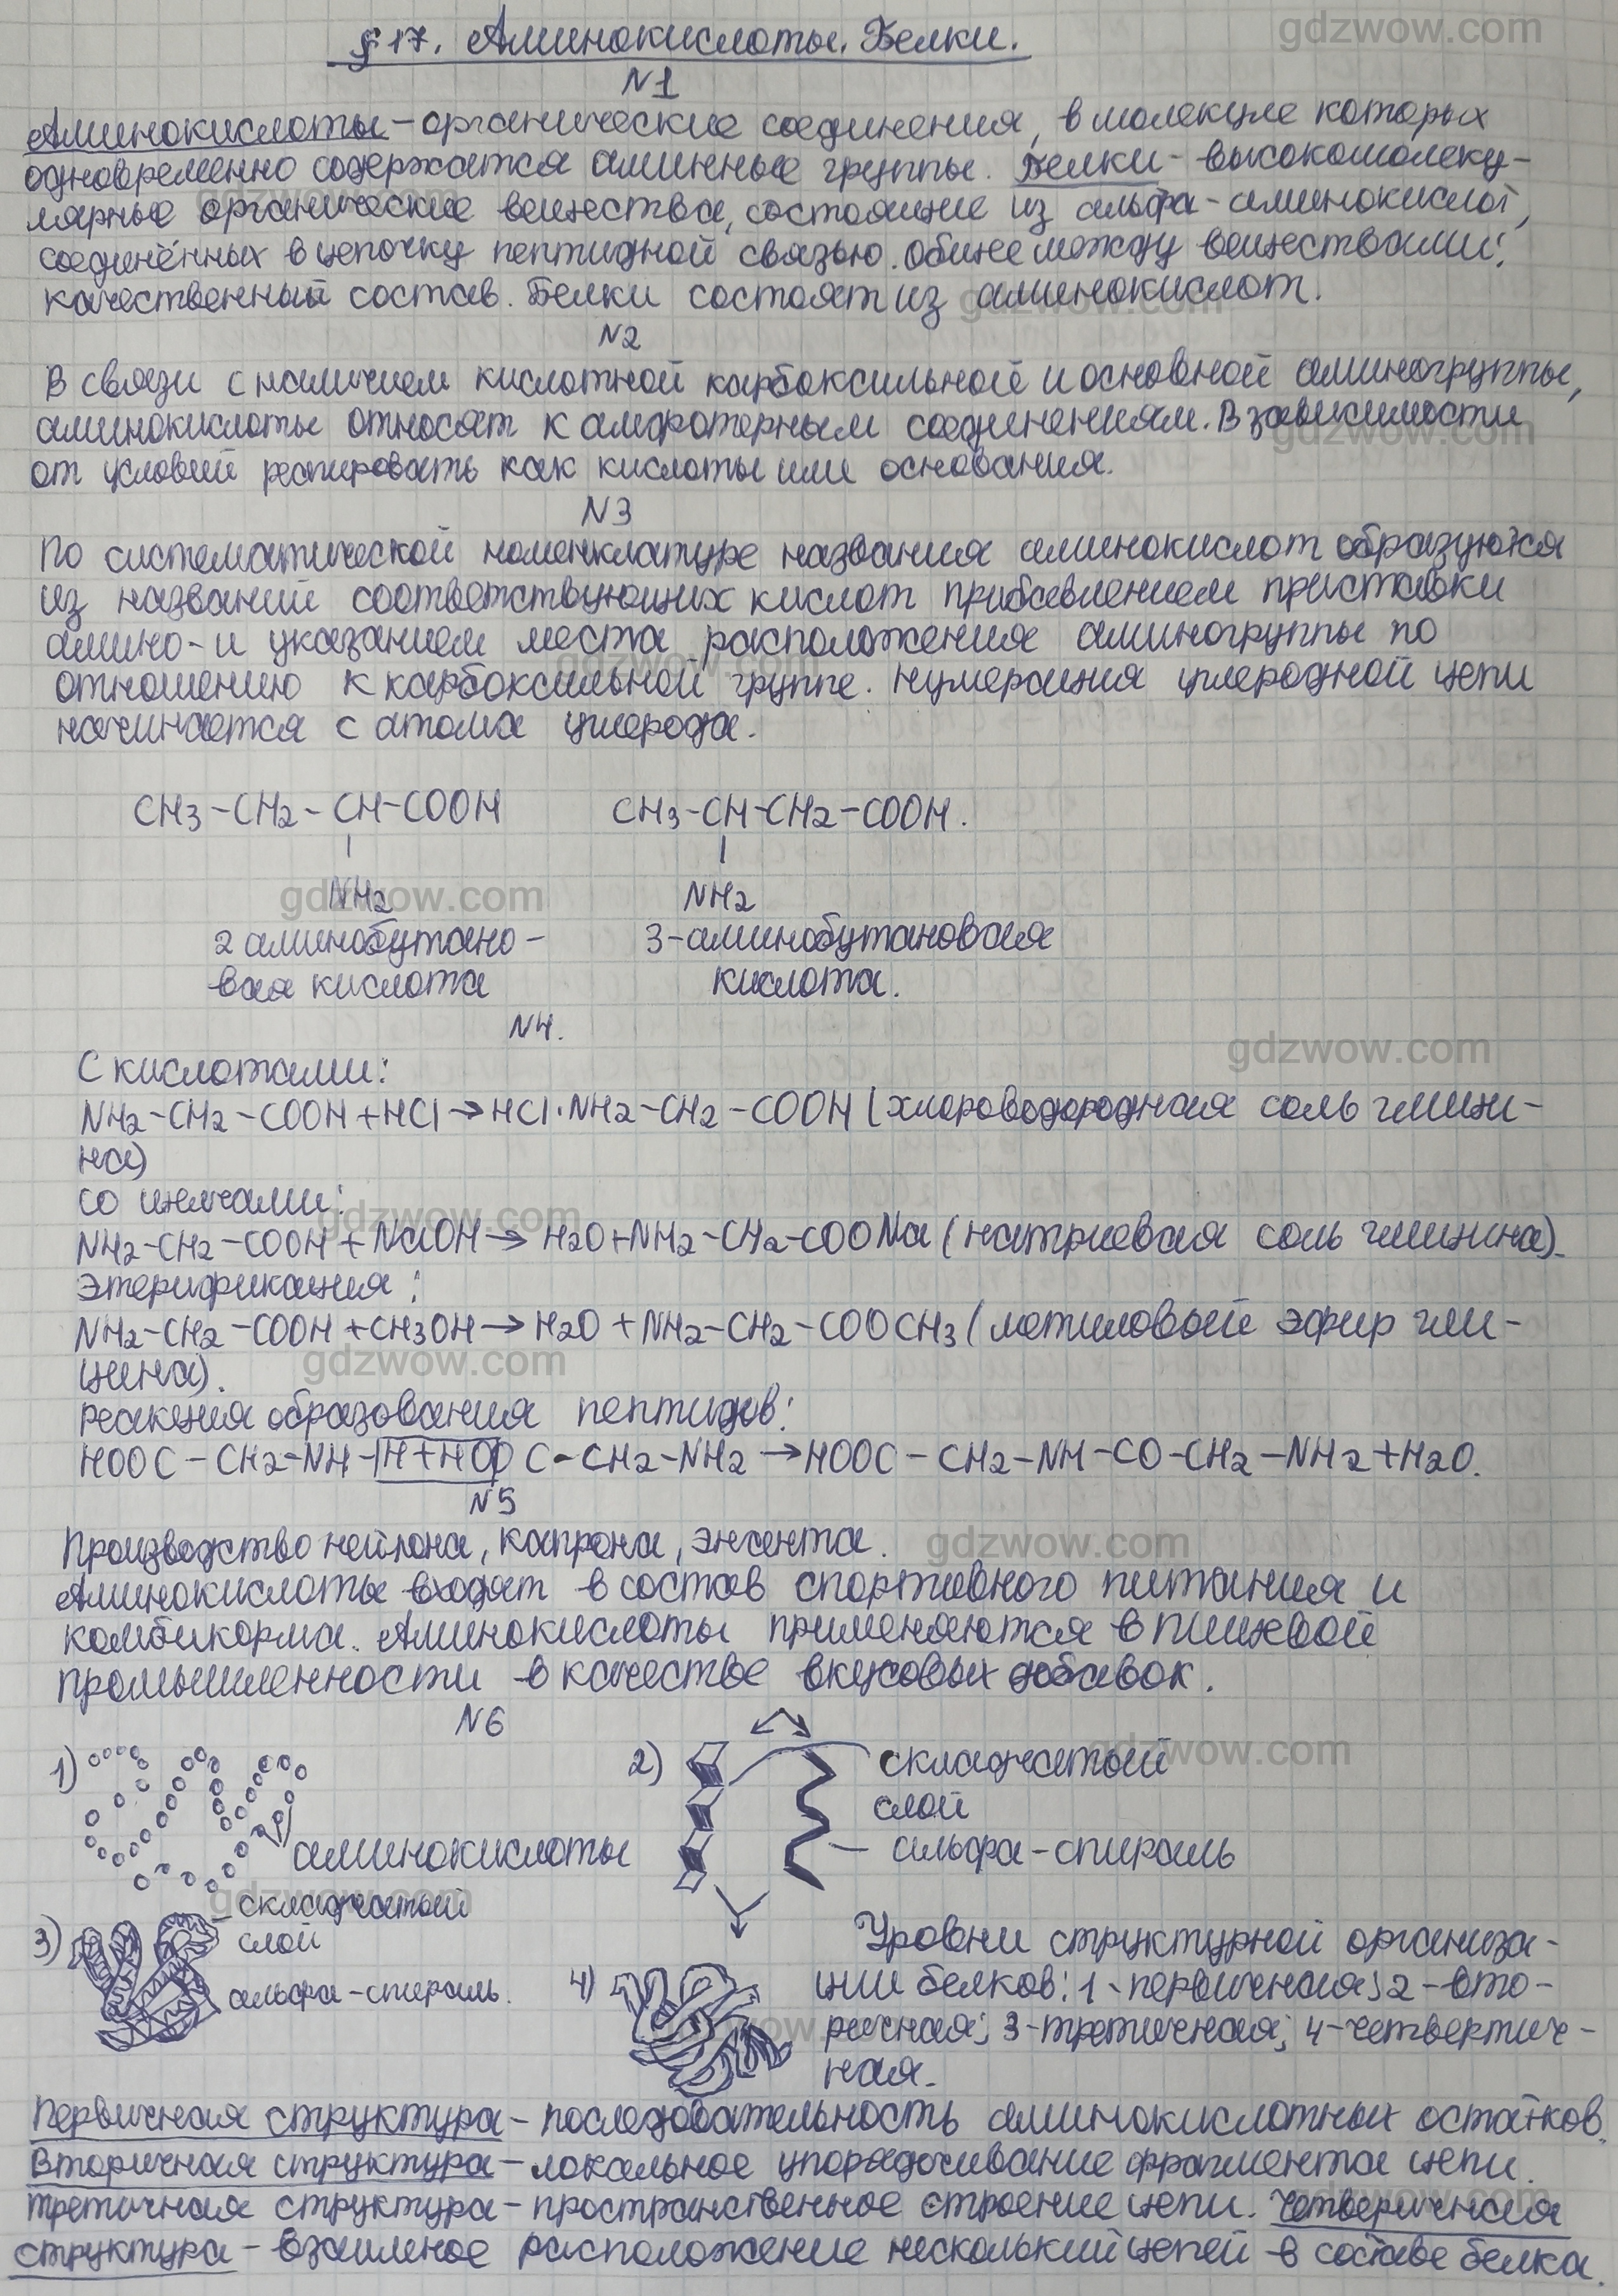 § 17. Аминокислоты. Белки.
N1
Аминокислоты – органические соединения, в молекуле которых
одновременно содержатся аминные группы. Белки – высокомолеку-
лярные органические вещества, состоящие из альфа-аминокислот,
соединённых в цепочку пептидной связью. Общее между веществами:
качественный состав. Белки состоят из аминокислот.
N2
В связи с наличием кислотной карбоксильной и основной аминогруппы,
аминокислоты относят к амфотерным соединениям. В зависимости
от условий реагировать как кислоты или основания.
N3
По систематической номенклатуре названия аминокислот образуются
из названий соответствующих кислот прибавлением приставки
амино- и указанием места расположения аминогруппы по
отношению к карбоксильной группе. Нумерация углеродной цепи
начинается с атома углерода.
CH3-CH2-CH-COOH CH3-CH-CH2-COOH.
NH2 NH2
2 аминобутано- 3-аминобутановая
вая кислота кислота.
N4.
С кислотами:
NH2-CH2-COOH+HCl→HCl·NH2-CH2-COOH (хлороводородная соль глици-
на)
со щелчами:
NH2-CH2-COOH+NaOH→H2O+NH2-CH2-COONa (натриевая соль глицина).
Этерификация:
NH2-CH2-COOH+CH3OH→H2O+NH2-CH2-COOCH3 (метиловый эфир гли-
цина).
реакция образования пептидов:
HOOC-CH2-NH-H+HOOC-CH2-NH2→HOOC-CH2-NH-CO-CH2-NH2+H2O.
N5
Производство нейлона, капрона, энанта.
Аминокислоты входят в состав спортивного питания и
комбикорма. Аминокислоты применяются в пищевой
промышленности в качестве вкусовых добавок.
N6
1) 2) складчатый
слой
аминокислоты альфа-спираль
складчатый
3) слой
альфа-спираль. 4)
Уровни структурной организа-
ции белков: 1-первичная; 2-вто-
ричная; 3-третичная; 4-четвертич-
ная.
Первичная структура – последовательность аминокислотных остатков.
Вторичная структура – локальное упорядочивание фрагмента цепи.
Третичная структура – пространственное строение цепи. Четверичная
структура – взаимное расположение несколький цепей в составе белка.
gdzwow.com
gdzwow.com
gdzwow.com
gdzwow.com
gdzwow.com
gdzwow.com
gdzwow.com
gdzwow.com
gdzwow.com
gdzwow.com
gdzwow.com
gdzwow.com
gdzwow.com
gdzwow.com